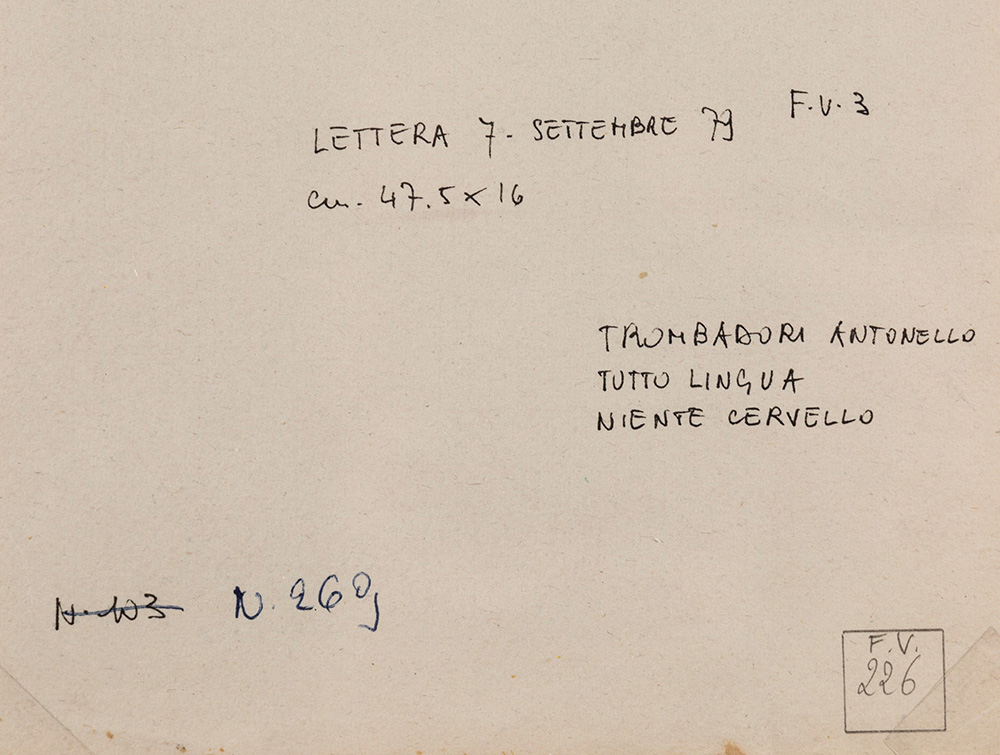 F.V.3
LETTERA 7- SETTEMBRE 79
cm. 47.5 x 16
TROMBADORI ANTONELLO
TUTTO LINGUA
NIENTE CERVELLO
N. 260g
F.V.
226